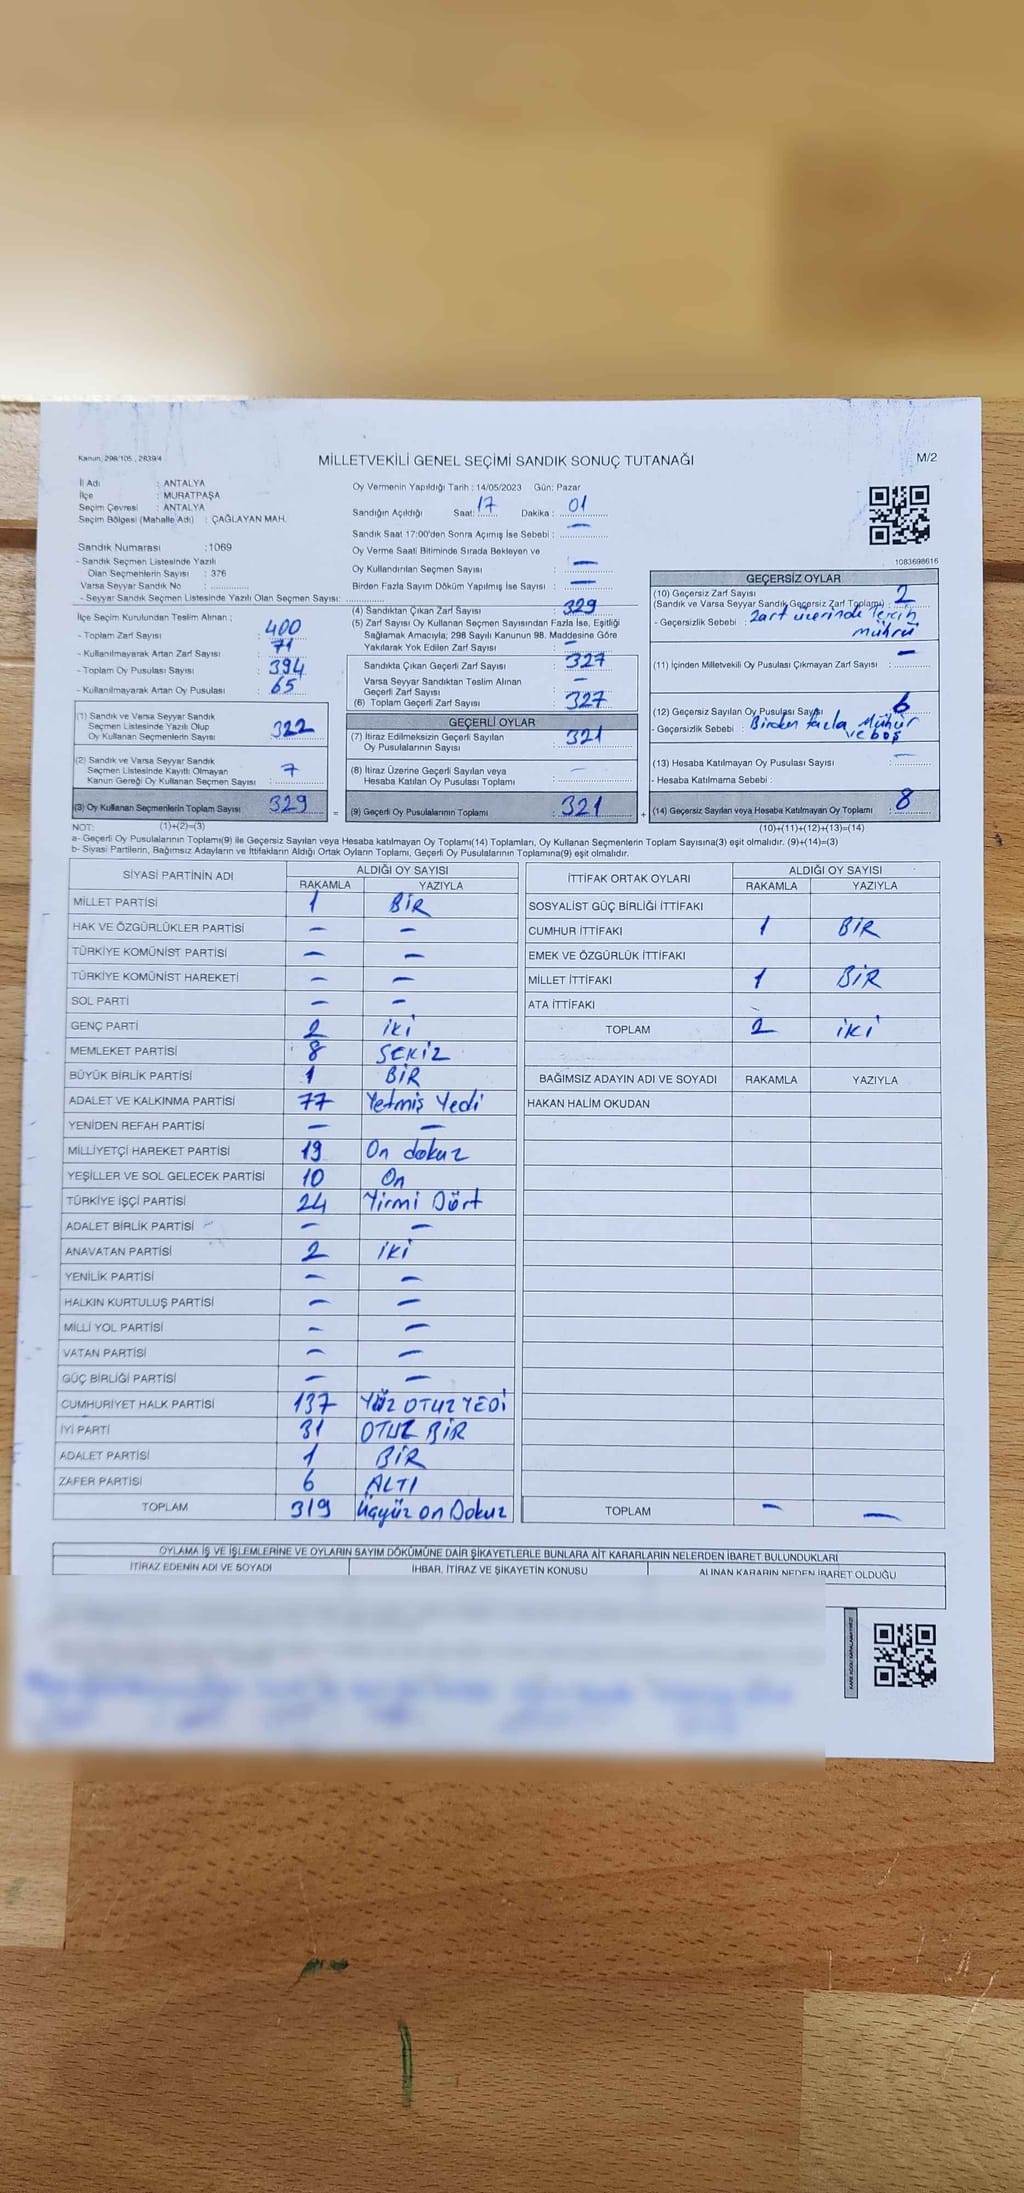 Kanun, 298/105 , 2839/4
MİLLETVEKİLİ GENEL SEÇİMİ SANDIK SONUÇ TUTANAĞI
M/2
İl Adı : ANTALYA
İlçe : MURATPAŞA
Seçim Çevresi : ANTALYA
Seçim Bölgesi (Mahalle Adı) : ÇAĞLAYAN MAH.
Sandık Numarası :1069
- Sandık Seçmen Listesinde Yazılı
Olan Seçmenlerin Sayısı : 376
Varsa Seyyar Sandık No :
- Seyyar Sandık Seçmen Listesinde Yazılı Olan Seçmen Sayısı:
İlçe Seçim Kurulundan Teslim Alınan ;
- Toplam Zarf Sayısı : 400
- Kullanılmayarak Artan Zarf Sayısı : 71
- Toplam Oy Pusulası Sayısı : 394
- Kullanılmayarak Artan Oy Pusulası : 65
(1) Sandık ve Varsa Seyyar Sandık
Seçmen Listesinde Yazılı Olup
Oy Kullanan Seçmenlerin Sayısı : 322
(2) Sandık ve Varsa Seyyar Sandık
Seçmen Listesinde Kayıtlı Olmayan
Kanun Gereği Oy Kullanan Seçmen Sayısı : 7
(3) Oy Kullanan Seçmenlerin Toplam Sayısı : 329
(1)+(2)=(3)
Oy Vermenin Yapıldığı Tarih : 14/05/2023 Gün: Pazar
Sandığın Açıldığı Saat: 17 Dakika : 01
Sandık Saat 17:00'den Sonra Açımış İse Sebebi : —
Oy Verme Saati Bitiminde Sırada Bekleyen ve
Oy Kullandırılan Seçmen Sayısı : —
Birden Fazla Sayım Döküm Yapılmış İse Sayısı : —
(4) Sandıktan Çıkan Zarf Sayısı : 329
(5) Zarf Sayısı Oy Kullanan Seçmen Sayısından Fazla İse, Eşitliği
Sağlamak Amacıyla; 298 Sayılı Kanunun 98. Maddesine Göre
Yakılarak Yok Edilen Zarf Sayısı : —
Sandıkta Çıkan Geçerli Zarf Sayısı : 327
Varsa Seyyar Sandıktan Teslim Alınan
Geçerli Zarf Sayısı : —
(6) Toplam Geçerli Zarf Sayısı : 327
GEÇERLİ OYLAR
(7) İtiraz Edilmeksizin Geçerli Sayılan
Oy Pusulalarının Sayısı : 321
(8) İtiraz Üzerine Geçerli Sayılan veya
Hesaba Katılan Oy Pusulası Toplamı : —
= (9) Geçerli Oy Pusulalarının Toplamı : 321 +
1083698616
GEÇERSİZ OYLAR
(10) Geçersiz Zarf Sayısı
(Sandık ve Varsa Seyyar Sandık Geçersiz Zarf Toplamı) : 2
- Geçersizlik Sebebi : Zarf üzerinde Tercih
mührü
(11) İçinden Milletvekili Oy Pusulası Çıkmayan Zarf Sayısı : —
(12) Geçersiz Sayılan Oy Pusulası Sayısı : 6
- Geçersizlik Sebebi : Birden fazla Mühür
ve boş
(13) Hesaba Katılmayan Oy Pusulası Sayısı : —
- Hesaba Katılmama Sebebi :
(14) Geçersiz Sayılan veya Hesaba Katılmayan Oy Toplamı : 8
(10)+(11)+(12)+(13)=(14)
NOT:
a- Geçerli Oy Pusulalarının Toplamı(9) ile Geçersiz Sayılan veya Hesaba katılmayan Oy Toplamı(14) Toplamları, Oy Kullanan Seçmenlerin Toplam Sayısına(3) eşit olmalıdır. (9)+(14)=(3)
b- Siyasi Partilerin, Bağımsız Adayların ve İttifakların Aldığı Ortak Oyların Toplamı, Geçerli Oy Pusulalarının Toplamına(9) eşit olmalıdır.
SİYASİ PARTİNİN ADI ALDIĞI OY SAYISI
RAKAMLA YAZIYLA
MİLLET PARTİSİ 1 BİR
HAK VE ÖZGÜRLÜKLER PARTİSİ — —
TÜRKİYE KOMÜNİST PARTİSİ — —
TÜRKİYE KOMÜNİST HAREKETİ — —
SOL PARTİ — —
GENÇ PARTİ 2 iKi
MEMLEKET PARTİSİ 8 SEKİZ
BÜYÜK BİRLİK PARTİSİ 1 BİR
ADALET VE KALKINMA PARTİSİ 77 Yetmiş Yedi
YENİDEN REFAH PARTİSİ — —
MİLLİYETÇİ HAREKET PARTİSİ 19 On dokuz
YEŞİLLER VE SOL GELECEK PARTİSİ 10 On
TÜRKİYE İŞÇİ PARTİSİ 24 Yirmi Dört
ADALET BİRLİK PARTİSİ — —
ANAVATAN PARTİSİ 2 iKi
YENİLİK PARTİSİ — —
HALKIN KURTULUŞ PARTİSİ — —
MİLLİ YOL PARTİSİ — —
VATAN PARTİSİ — —
GÜÇ BİRLİĞİ PARTİSİ — —
CUMHURİYET HALK PARTİSİ 137 YÜZ OTUZ YEDİ
İYİ PARTİ 31 OTUZ BİR
ADALET PARTİSİ 1 BİR
ZAFER PARTİSİ 6 ALTI
TOPLAM 319 üçyüz on Dokuz
İTTİFAK ORTAK OYLARI ALDIĞI OY SAYISI
RAKAMLA YAZIYLA
SOSYALİST GÜÇ BİRLİĞİ İTTİFAKI
CUMHUR İTTİFAKI 1 BİR
EMEK VE ÖZGÜRLÜK İTTİFAKI
MİLLET İTTİFAKI 1 BİR
ATA İTTİFAKI
TOPLAM 2 iKi
BAĞIMSIZ ADAYIN ADI VE SOYADI RAKAMLA YAZIYLA
HAKAN HALİM OKUDAN
TOPLAM — —
OYLAMA İŞ VE İŞLEMLERİNE VE OYLARIN SAYIM DÖKÜMÜNE DAİR ŞİKAYETLERLE BUNLARA AİT KARARLARIN NELERDEN İBARET BULUNDUKLARI
İTİRAZ EDENİN ADI VE SOYADI İHBAR, İTİRAZ VE ŞİKAYETİN KONUSU ALINAN KARARIN NEDEN İBARET OLDUĞU